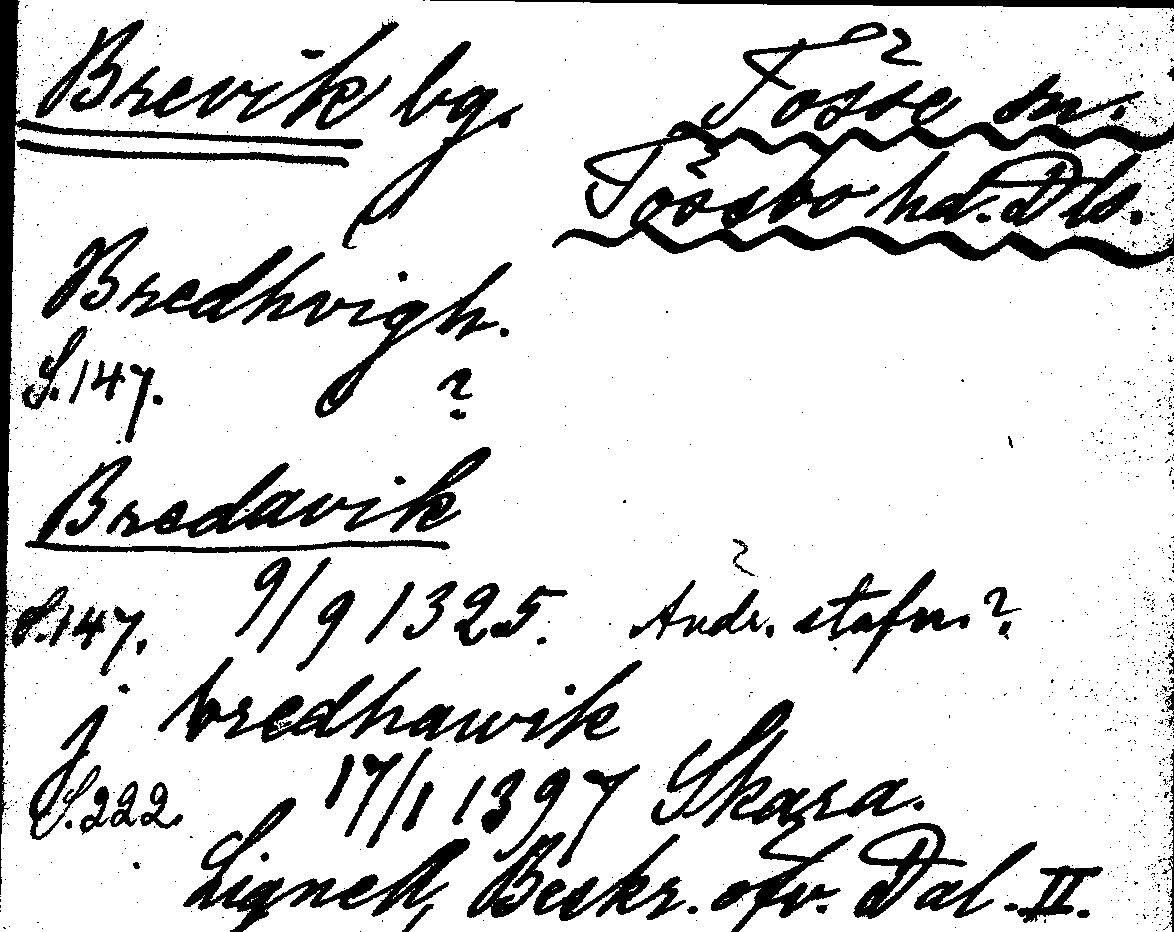 Brevik bg. Tösse sn.
Tössbo hd. Dls.
Bredhvigh.
S. 147. ?
Bredavik
S. 147. 9/9 1325. Andr. stafn. ?
j bredhawik
S. 222. 17/1 1397 Skara.
Lignell, Beskr. öfv. Dal. II.